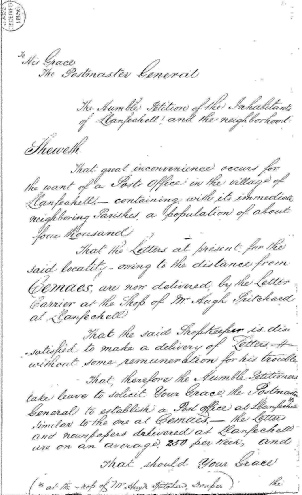 To
His Grace
The Postmaster General
The Humble Petition of the Inhabitants
of Llanfechell and the neighborhood
Sheweth
That great inconvenience occurs for
the want of a Post Office in the village of
Llanfechell — containing with its immediate
neighboring Parishes, a population of about
four thousand
That the Letters at present for the
said locality — owing to the distance from
Cemaes, are now delivered by the Letter
Carrier at the Shop of Mr Hugh Pritchard
at Llanfechell
That the said Shopkeeper is dis-
-satisfied to make a delivery of Letters &
without some remuneration for his trouble
That, therefore the Humble Petitioners
take leave to solicit Your Grace, the Postmaster
General to establish a Post office at Llanfechell
similar to the one at Cemaes — the letters
and newspapers delivered at Llanfechell
use on an average 250 per week, and
That should Your Grace
at the shop of Mr Hugh Pritchard, Draper
the